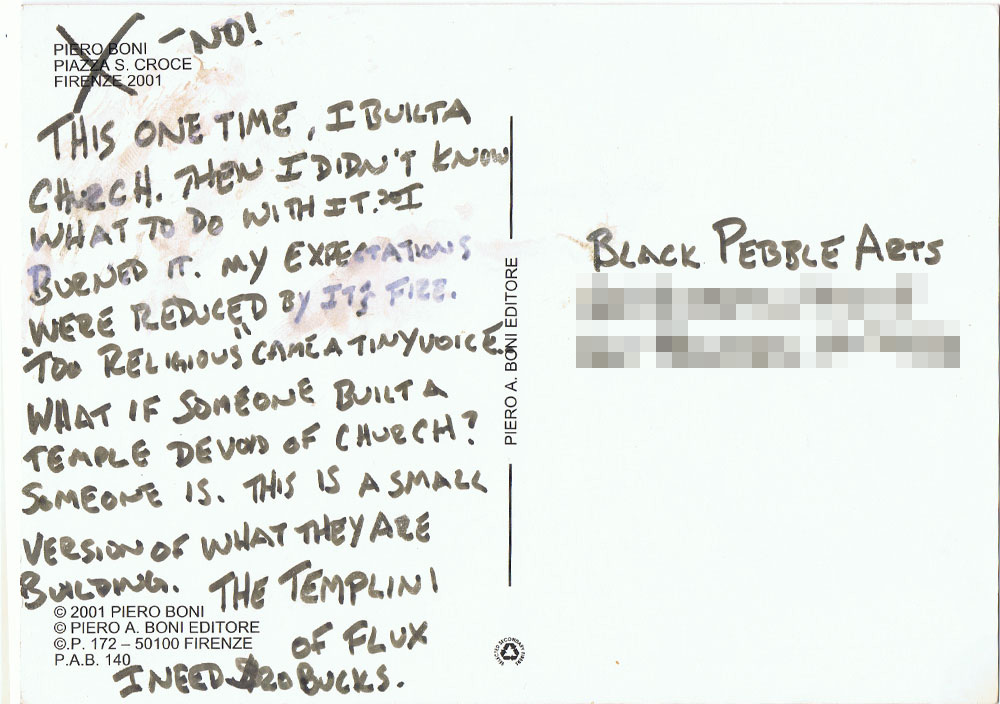 PIERO BONI
PIAZZA S. CROCE
FIRENZE 2001
- NO!
THIS ONE TIME, I BUILT A
CHURCH. THEN I DIDN'T KNOW
WHAT TO DO WITH IT. SO I
BURNED IT. MY EXPECTATIONS
WERE REDUCED BY ITS FIRE.
"TOO RELIGIOUS" CAME A TINY VOICE.
WHAT IF SOMEONE BUILT A
TEMPLE DEVOID OF CHURCH?
SOMEONE IS. THIS IS A SMALL
VERSION OF WHAT THEY ARE
BUILDING. THE TEMPLINI
OF FLUX
I NEED 20 BUCKS.
© 2001 PIERO BONI
© PIERO A. BONI EDITORE
©.P. 172 – 50100 FIRENZE
P.A.B. 140
PIERO A. BONI EDITORE
BLACK PEBBLE ARTS